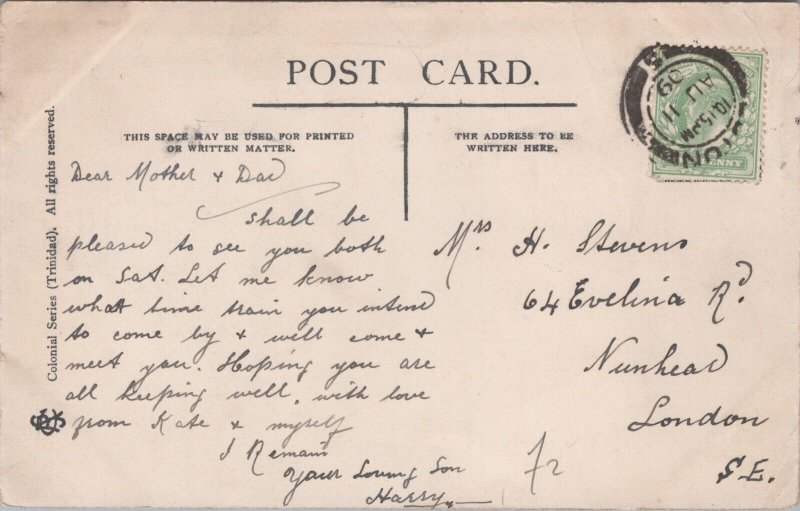 POST CARD.
THIS SPACE MAY BE USED FOR PRINTED
OR WRITTEN MATTER.
THE ADDRESS TO BE
WRITTEN HERE.
Colonial Series (Trinidad). All rights reserved.
Dear Mother & Dad
shall be
pleased to see you both
on Sat. Let me know
what time train you intend
to come by & will come &
meet you. Hoping you are
all keeping well, with love
from Kate & myself
I Remain
Your Loving Son
Harry
Mrs H. Stevens
64 Evelina Rd.
Nunhead
London
S.E.
10.15 PM
AU 11
09
PENNY